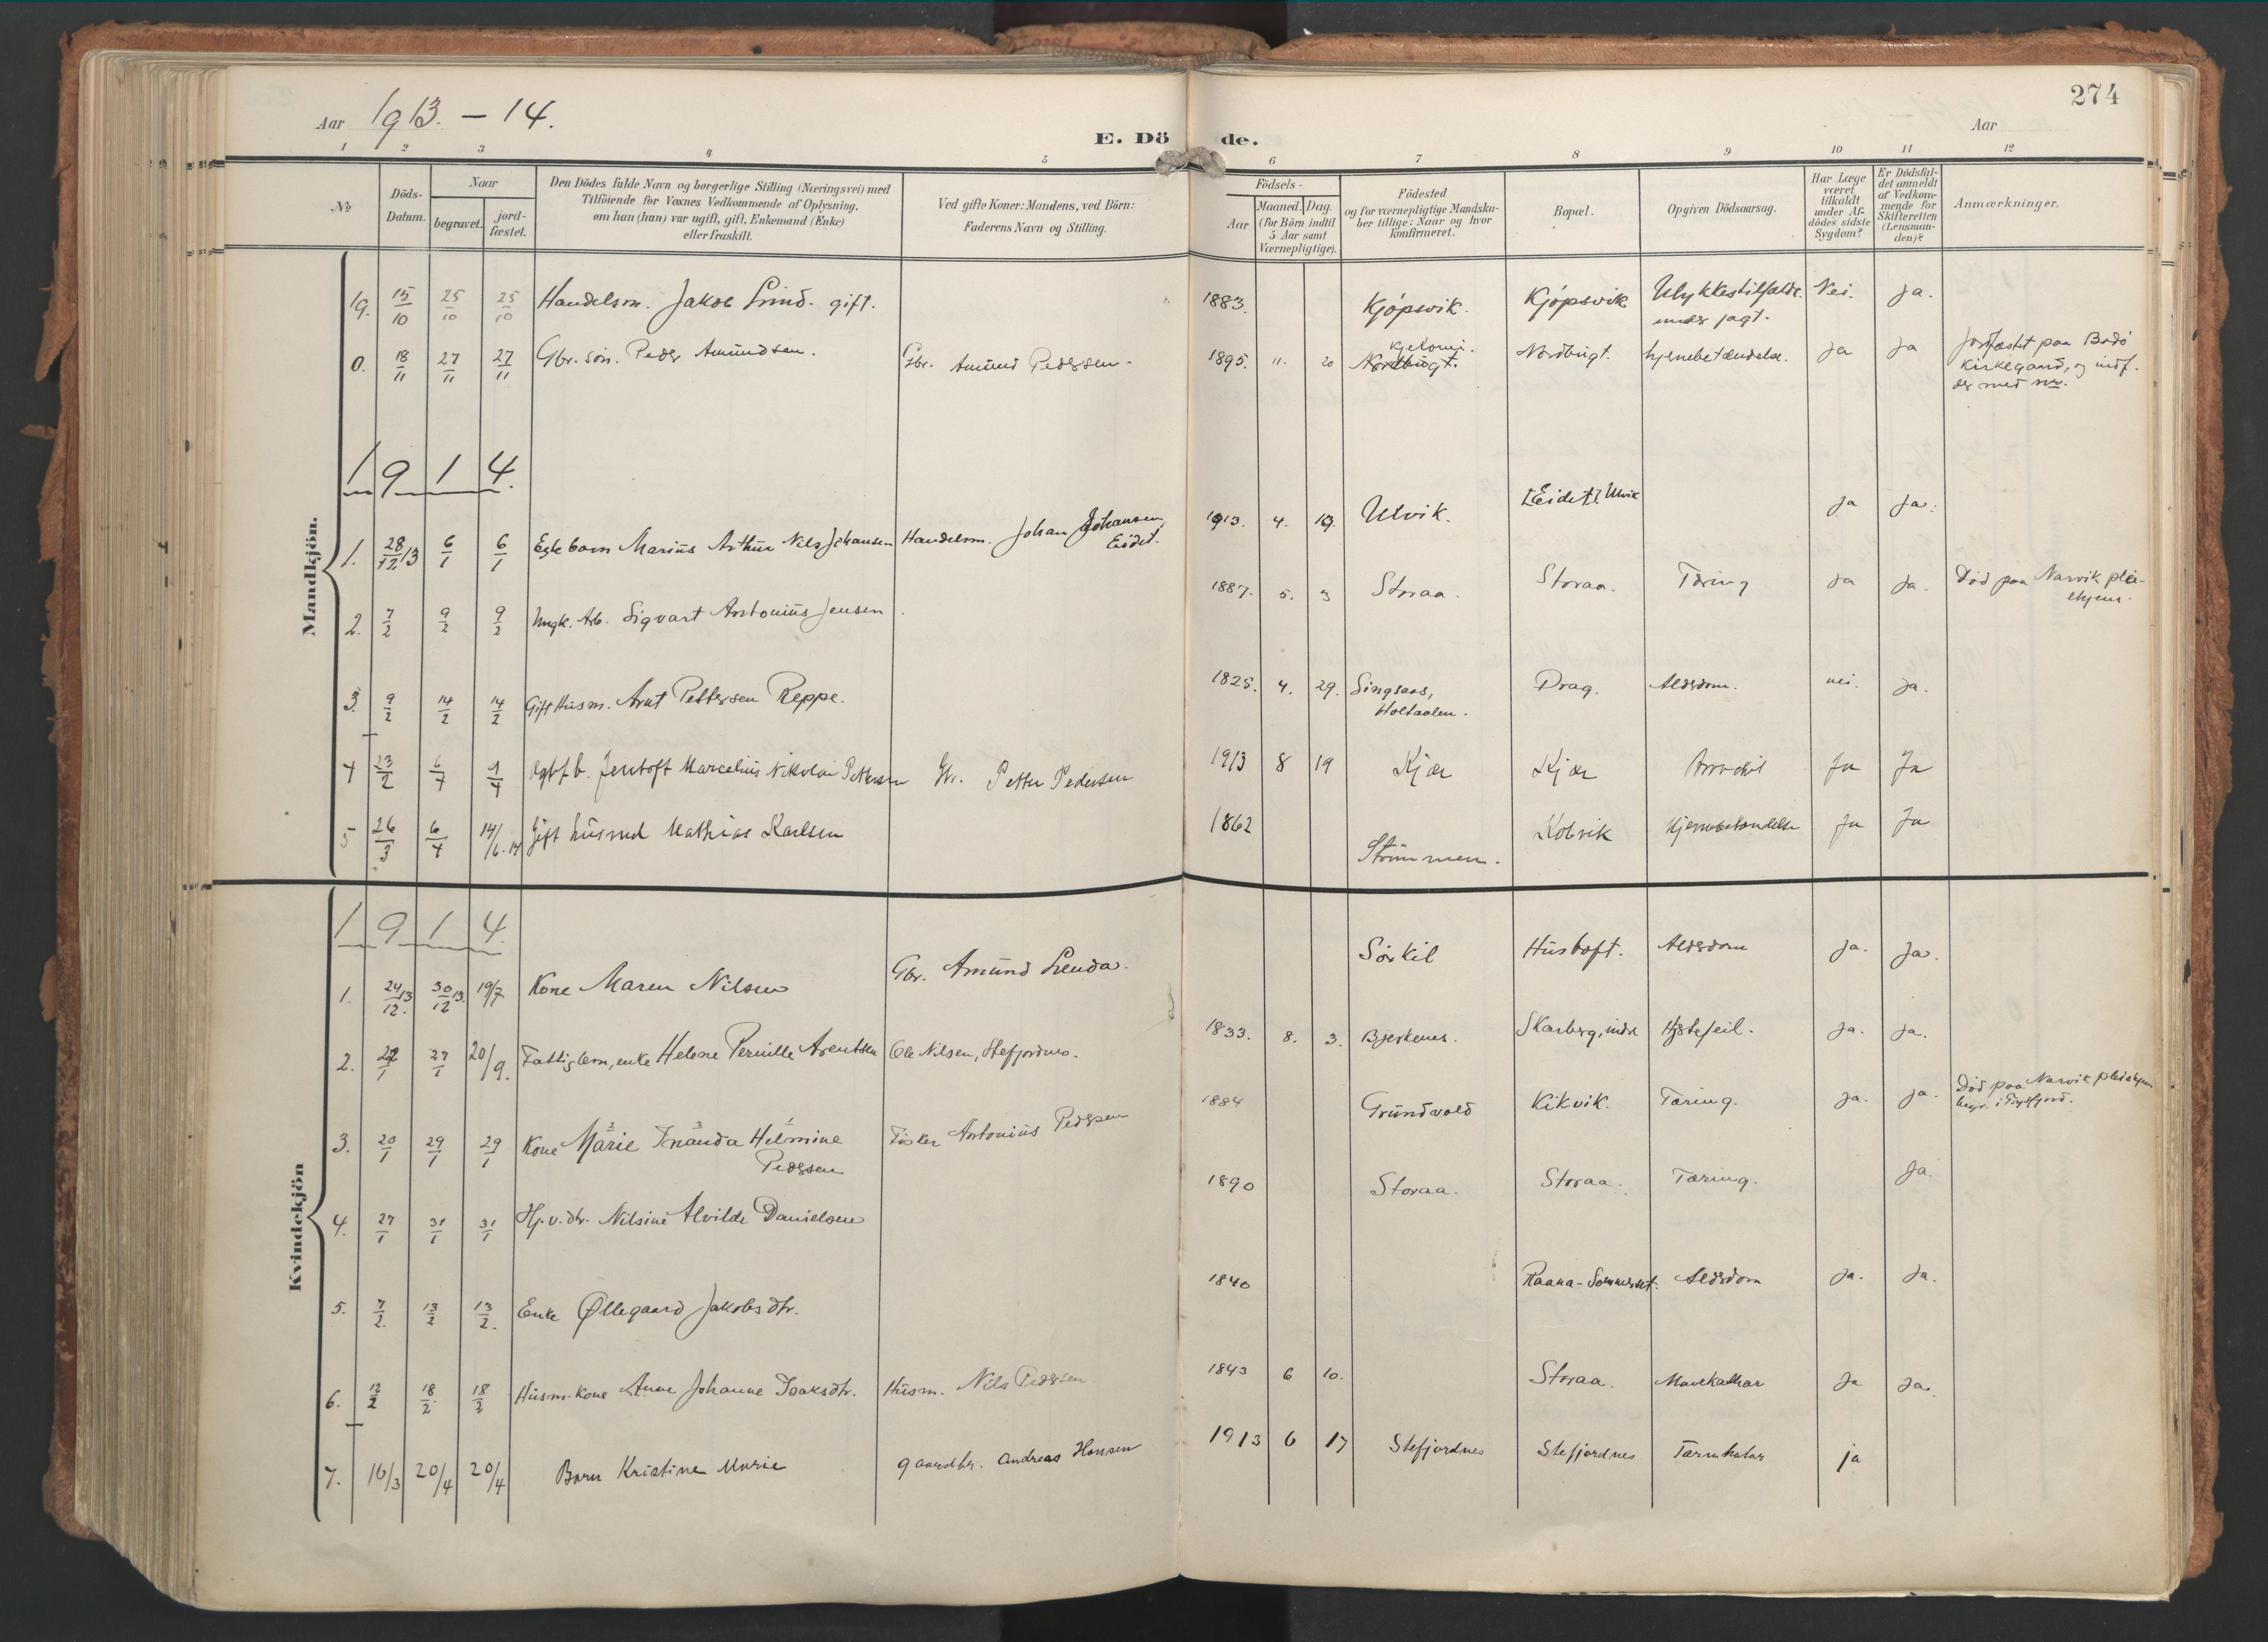 Aar 1913. - 14.
E. Döde.
274
Aar
1 2 3 4 5 6 7 8 9 10 11 12
No
Döds-Datum.
Naar
begravet.
jord-fæstet.
Den Dödes fulde Navn og borgerlige Stilling (Næringsvei) med
Tilföiende for Voxnes Vedkommende af Oplysning,
om han (hun) var ugift, gift, Enkemand (Enke)
eller fraskilt.
Ved gifte Koner: Mandens, ved Börn:
Faderens Navn og Stilling.
Födsels-
Aar
Maaned. Dag.
(for Börn indtil
5 Aar samt
Værnepligtige).
Födested
og for værnepligtige Mandska-
ber tillige: Naar og hvor
konfirmeret.
Bopæl.
Opgiven Dödsaarsag.
Har Læge
været
tilkaldt
under Af-
dödes sidste
Sygdom?
Er Dödsfal-
det anmeldt
af Vedkom-
mende for
Skifteretten
(Lensman-
den)?
Anmærkninger.
Mandkjön.
19. 15/10 25/10 25/10 Handelsm. Jakob Lind. gift. 1883. Kjøpsvik. Kjøpsvik Ulykkestilfælde Nei. Ja.
under jagt.
0. 18/11 27/11 27/11 Gbr. søn. Peder Amundsen. Gbr. Amund Pedersen. 1895. 11. 20 Nordbugt. Nordbugt. hjernebetændelse. Ja Ja Jordfæstet paa Bodø
Kirkegaard, og indf.
1914.
1. 28/12 13 6/1 6/1 Egte barn Marius Arthur Nils Johansen Handelsm. Johan Johansen 1913. 4. 19. Ulvik. [Eidet] Ulvik Ja Ja.
Eidet.
2. 7/2 9/2 9/2 Ungk. Arb. Sigvart Antonius Jensen 1887. 5. 3 Storaa. Storaa. Tæring Ja Ja. Død paa Narvik plei-
ehjem.
3. 9/2 14/2 14/2 Gift Husm. Arnt Pettersen Reppe. 1825. 4. 29. Singsaas, Drag. Alderdom. nei. Ja.
Holtaalen.
4 23/2 Jentoft Marcelius Nikolai Pettersen Gbr. Petter Pedersen 1913 8 19 Kjær Kjær Ja Ja
5 26/3 6/4 14/6. 14 Gift husmd Mathias Karlsen 1862 Strømmen. Kobvik Hjernebetændelse Ja Ja
Kvindekjön
1914.
1. 24/12 13. 30/12 13. 19/7 Kone Maren Nilsen Gbr. Amund Lenda. Sørkil Hustoft. Alderdom Ja. Ja.
2. 22/1 27/1 20/9. Fattiglem, enke Helene Pernille Arentsen Ole Nilsen, Stefjordnes. 1833. 8. 3. Bjerkenes. Skarberg, indre Hjertefeil. Ja. Ja.
3. 20/1 29/1 29/1 Kone Marie Inanda Helmine Fisker Antonius Pedersen 1884 Grundvold Kikvik. Tæring. Ja. Ja. Død paa Narvik pleiehjem
Pedersen begr. i Tysfjord.
4. 27/1 31/1 31/1 Hj.v. dtr. Nilsine Alvilde Danielsen 1890 Storaa. Storaa. Tæring. Ja.
5. 7/2. 13/2 13/2. Enke Øllegaard Jakobsdtr. 1840 Raana-Sommerset. Alderdom Ja. Ja.
6. 12/2 18/2. 18/2 Husm. kone Anne Johanne Isaksdtr. Husm. Nils Pedersen. 1843 6 10. Storaa. Mavekathar Ja Ja.
7. 16/3 20/4 20/4 Barn Kristine Marie gaardbr. Andreas Hansen 1913 6 17 Stefjordnes Stefjordnes Tarmkatar ja